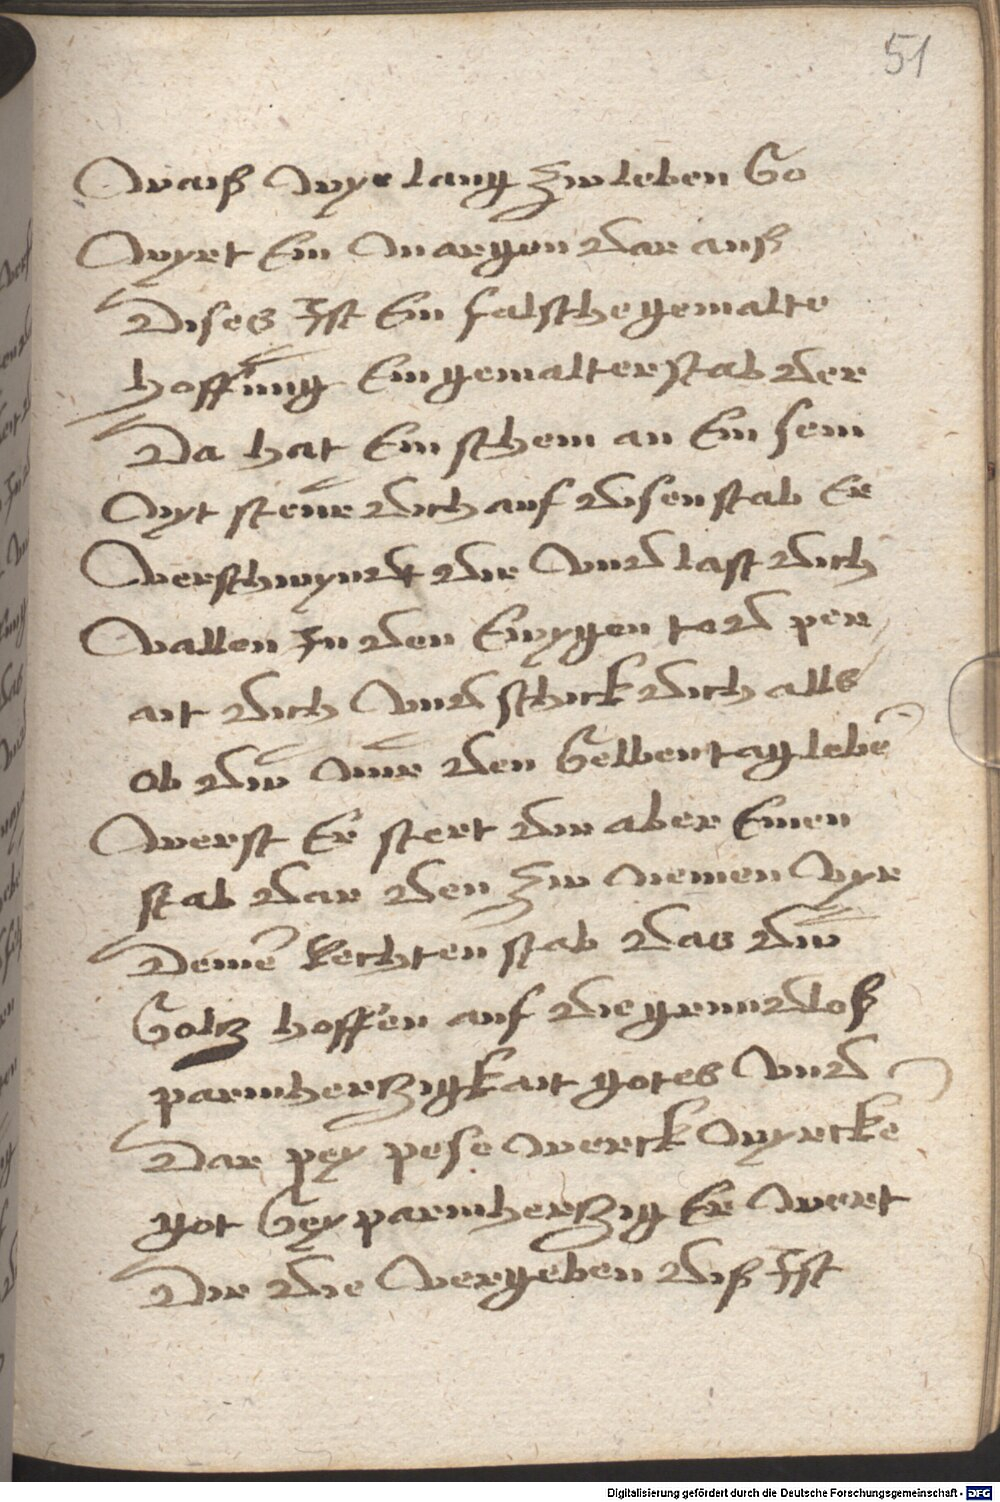 51
Waiß Wye lang zw leben So
Wyrt Ein Margen dar auß
Dises Ist Ein falsche gemalte
hoffnung Ein gemalter stab der
Da hat Ein schem an Ein sein
Nyt steur dich auf disen stab Er
Verschwyndt dir Vnd last dich
Vallen In den Ewygen tod per
ait dich Vnd schick dich alls
ob dw Nur den Selben tag lebe
Werst Er stert dir aber Einen
stab dar den zw nemen Wyr
Deine Rechten stab das dw
Soltz hoffen auf die grundloß
parmherzigkait gotes Vnd
Dar pey pese werck Wyrcke
got Sey parmherzig Er Wert
Dir die Vergeben diß Ist
Digitalisierung gefördert durch die Deutsche Forschungsgemeinschaft - DFG